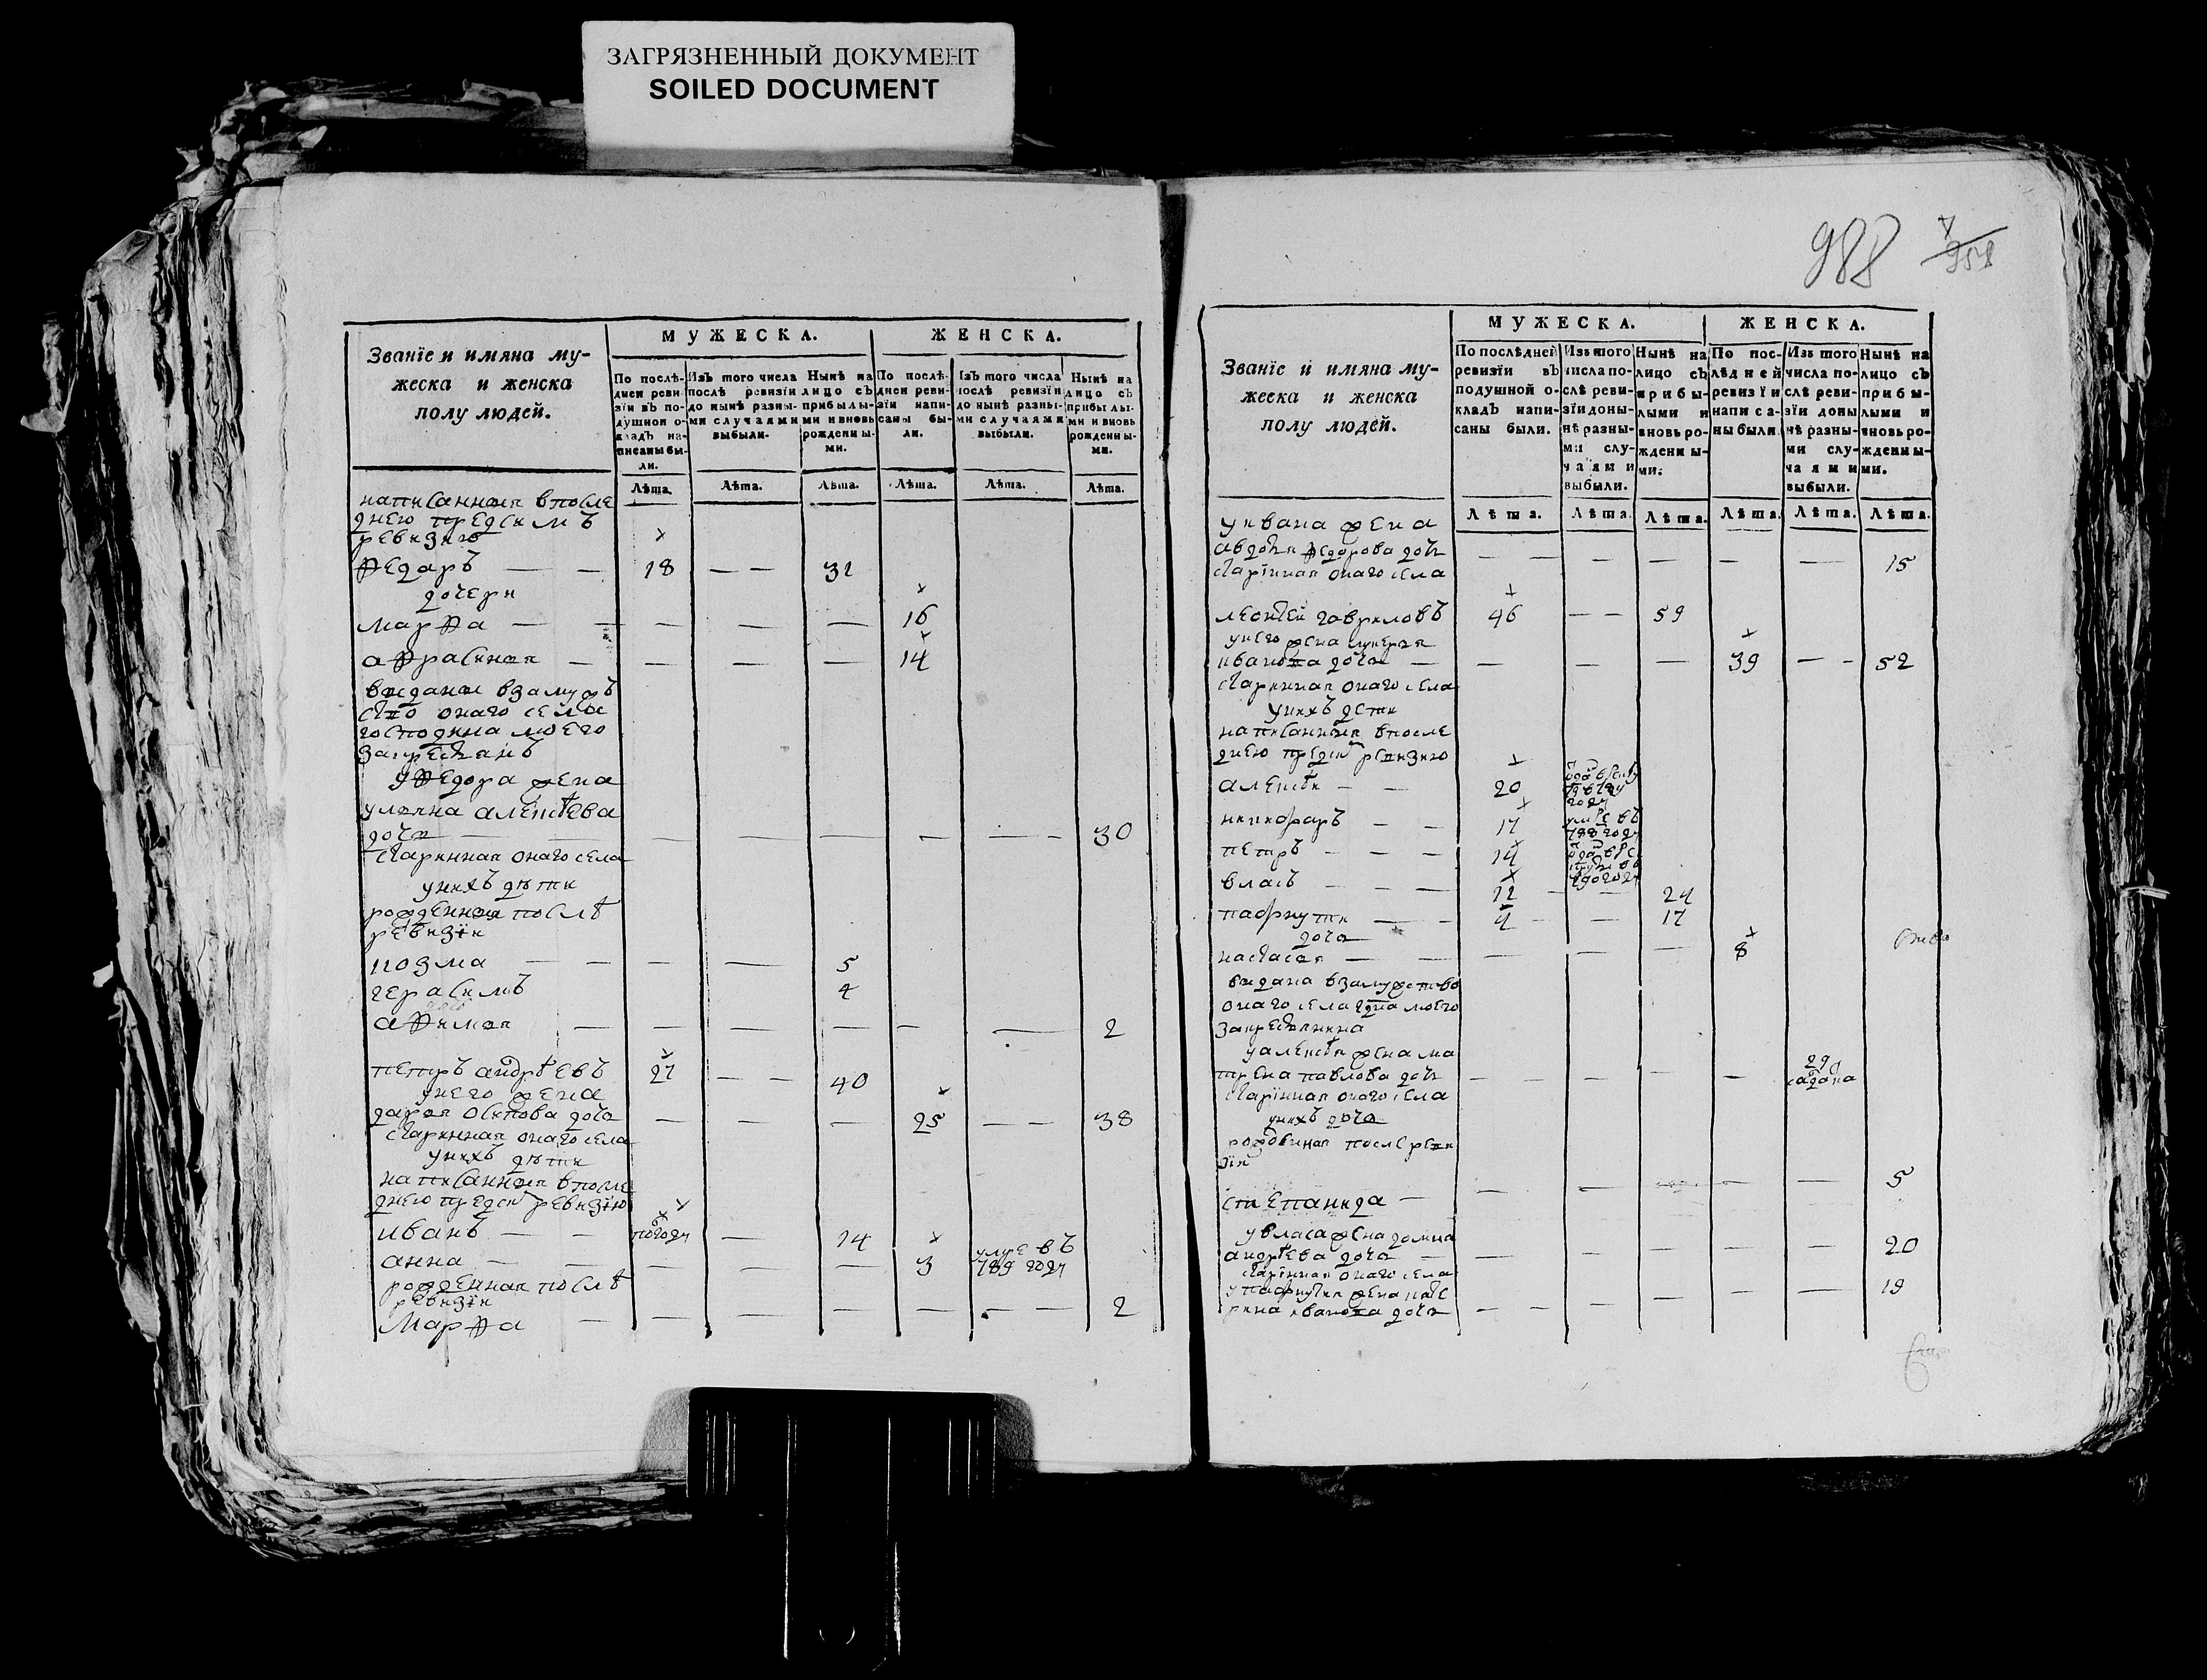 ЗАГРЯЗНЕННЫЙ ДОКУМЕНТ
SOILED DOCUMENT
988
958
Званїе и имяна му-
жеска и женска
полу людей.
МУЖЕСКА.
ЖЕНСКА.
По послѣ-
дней реви-
зїи въ по-
душной о-
кладъ на-
писаны бы-
ли.
Изъ того числа
послѣ ревизїи
до нынѣ разны-
ми случаями
выбыли.
Нынѣ на
лицо съ
прибылы-
ми и вновь
рожденны-
ми.
По послѣ-
дней реви-
зїи напи-
саны бы-
ли.
Изъ того числа
послѣ ревизїи
до нынѣ разны-
ми случаями
выбыли.
Нынѣ на
лицо съ
прибылы-
ми и вновь
рожденны-
ми.
Лѣта. Лѣта. Лѣта. Лѣта. Лѣта. Лѣта.
написанныя впосле
днею предсимъ
ревизию
Ѳедаръ — — 18 — — 31
дочери
марѲа — — — — — 16
аѲрасиная — — — — 14
выданы взамужъ
ство онаго села
господина моего
закрестьянъ
уѲедора жена
уляна алексѣева
дочь — — — — — — 30
старинная онаго села
унихъ дѣти
рожденныя послѣ
ревизїи
козма — — — — 5
герасимъ 4
аѲимая — — — — — — 2
петръ андрѣевъ 27 — — 40
унего жена
дарья осипова дочь — — — 25 — — 38
старинная онаго села
унихъ дѣти
написанныя впосле
днею предси ревизїю
иванъ — — погоду — 14
анна — — — — 3 умре въ
789 году
рожденная послѣ
ревизїи
МарѲа — — — — — — 2
Званїе и имяна му-
жеска и женска
полу людей.
МУЖЕСКА.
ЖЕНСКА.
По послѣдней
ревизїи въ
подушной о-
кладъ напи-
саны были.
Изъ того
числа по-
слѣ реви-
зїи доны-
нѣ разны-
ми слу-
чаями
выбыли.
Нынѣ на
лицо съ
прибы-
лыми и
вновь ро-
жденны-
ми.
По пос-
лѣдней
ревизїи
написа-
ны были.
Изъ того
числа по-
слѣ реви-
зїи доны
нѣ разны-
ми слу-
чаями
выбыли.
Нынѣ на
лицо съ
прибы-
лыми и
вновь ро-
жденны-
ми.
Лѣта. Лѣта. Лѣта. Лѣта. Лѣта. Лѣта.
уивана жена
авдотья Ѳедорова дочь — — — — — — 15
старїнная онаго села
леонтей гавриловъ 46 — — 59
унего жена лукерья
иванова дочь — — — — 39 — — 52
старинная онаго села
унихъ дети
написанныя впосле
днею предси ревизию
алексѣи — — 20
никифаръ — — 17 умре въ
788 году
петръ — — — 14
власъ — — — 12 — — 24
пафнутии — — 4 — — 17
дочь
настасья — — — — — 8
выдана взамужство
онаго села гдна моего
закрестьянина
уалексѣя жена ма
трена павлова дочь — — — — — 29
старїнная онаго села
унихъ дочь
рожденная после реви
зїи
степанида — — — — — — 5
увласа жена домна
андрѣева дочь — — — — — — 20
старїнная онаго села
упафнутия жена кате
рина иванова дочь — — — — — — 19